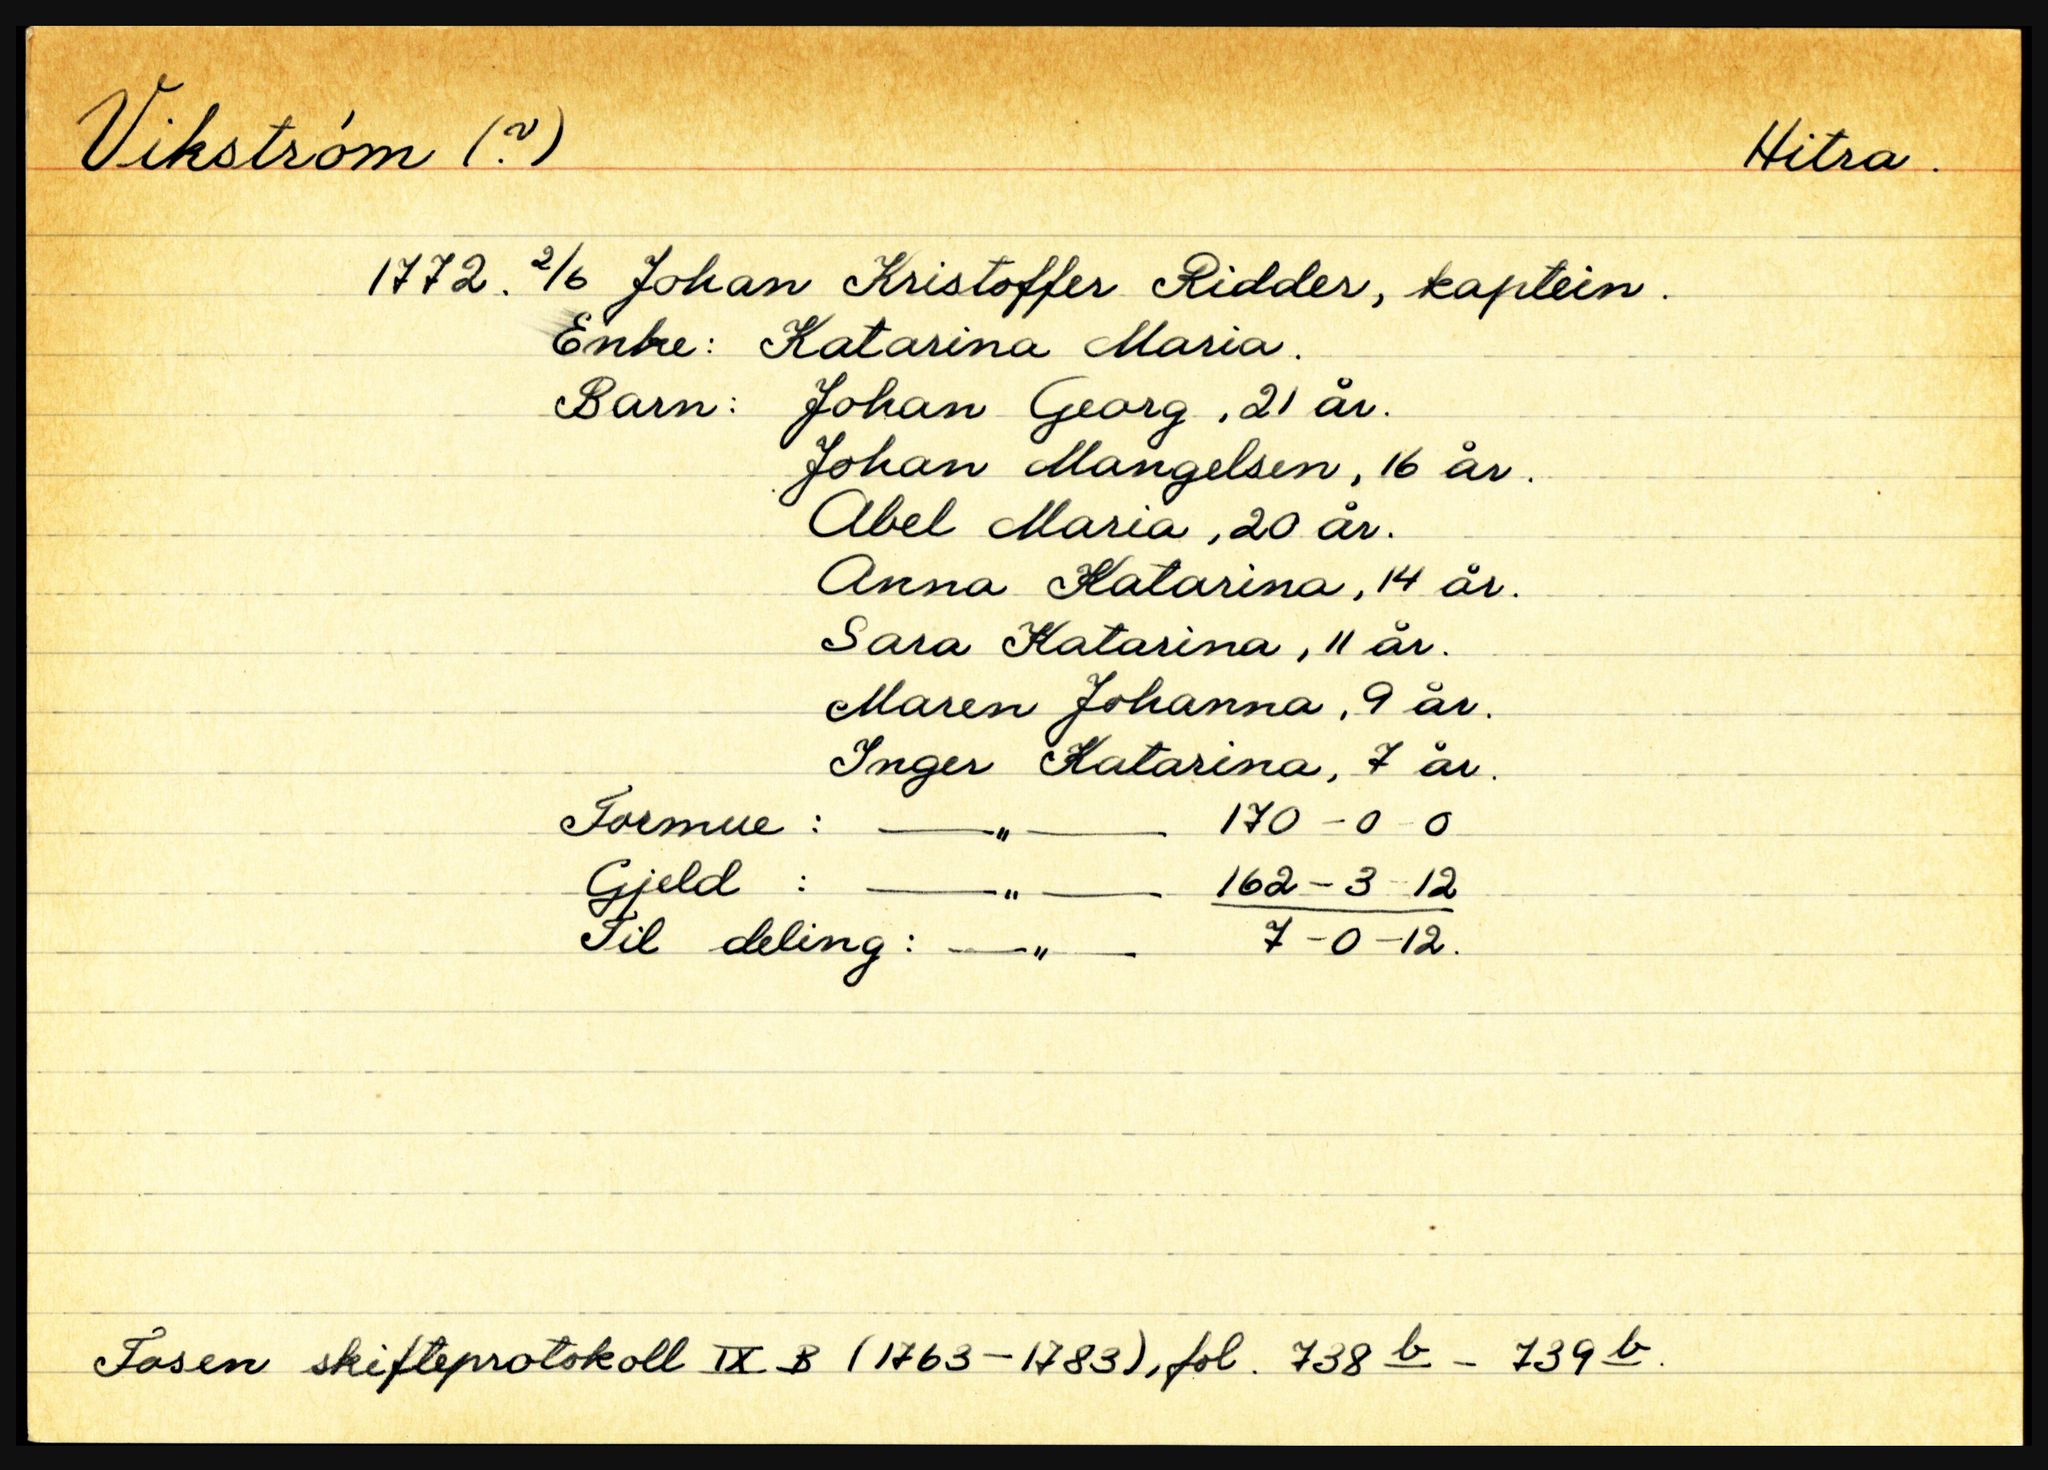 Vikstróm (?) Hitra.
1772. 2/6 Johan Kristoffer Ridder, kaptein.
Enke: Katarina Maria.
Barn: Johan Georg, 21 år.
Johan Mangelsen, 16 år.
Abel Maria, 20 år.
Anna Katarina, 14 år.
Sara Katarina, 11 år.
Maren Johanna, 9 år.
Inger Katarina, 7 år.
Formue: —„— 170-0-0
Gjeld: —„— 162-3-12
Til deling: —„— 7-0-12.
Fosen skifteprotokoll IX B (1763-1783), fol. 738 b - 739 b.